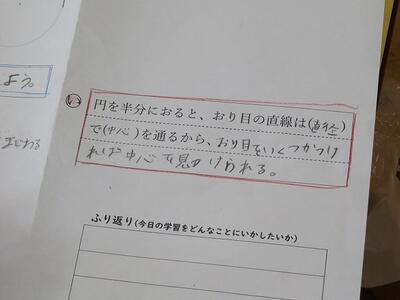 よう。
まじわる
い
円を半分におると、おり目の直線は(直径)
で(中心)を通るから、おり目をいくつかつけ
れば中心を見つけられる。
ふり返り(今日の学習をどんなことにいかしたいか)